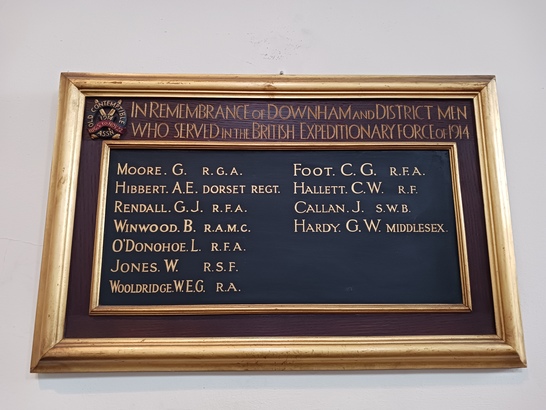 OLD CONTEMPTIBLE
ASSN
IN REMEMBRANCE OF DOWNHAM AND DISTRICT MEN
WHO SERVED IN THE BRITISH EXPEDITIONARY FORCE OF 1914
MOORE. G. R.G.A.
HIBBERT. A.E. DORSET REGT.
RENDALL. G.J. R.F.A.
WINWOOD. B. R.A.M.C.
O'DONOHOE. L. R.F.A.
JONES. W. R.S.F.
WOOLDRIDGE. W.E.G. R.A.
FOOT. C.G. R.F.A.
HALLETT. C.W. R.F.
CALLAN. J. S.W.B.
HARDY. G.W. MIDDLESEX.